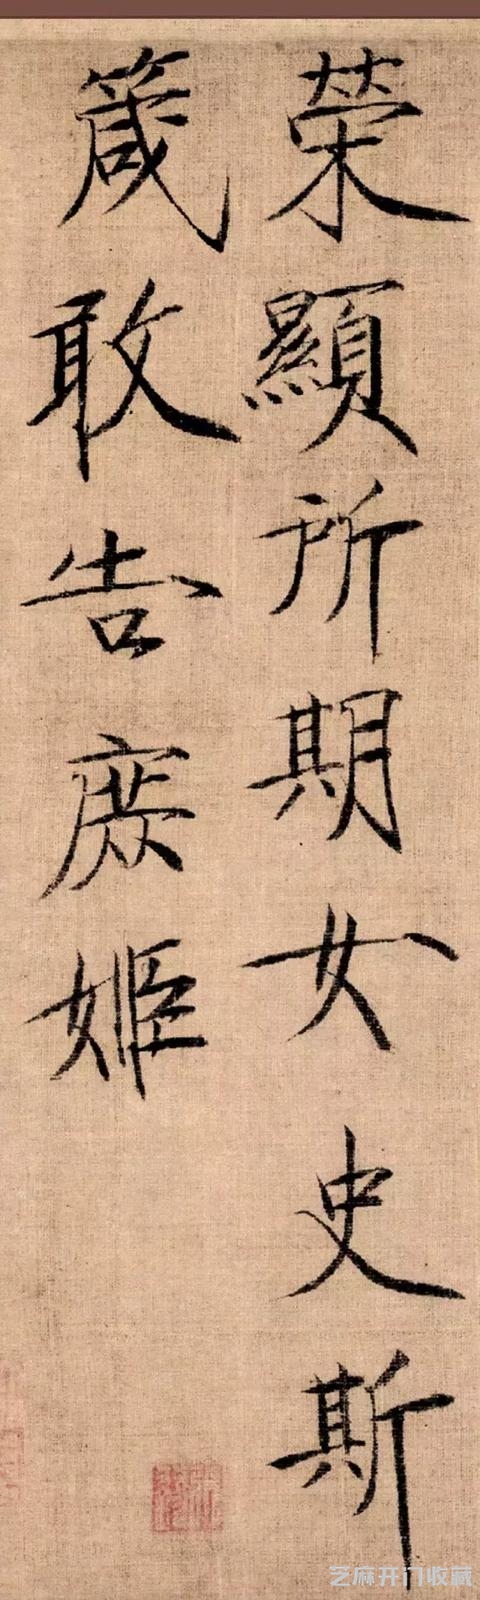 荣顯所期女史斯
箴敢告庶姬
芝麻开门收藏